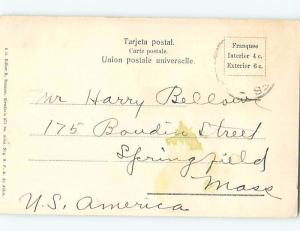 Tarjeta postal.
Carte postale.
Union postale universelle.
Franqueo
Interior 4 c.
Exterior 6 c.
Mr Harry Bellows
175 Boudin Street
Springfield
Mass
U.S. America